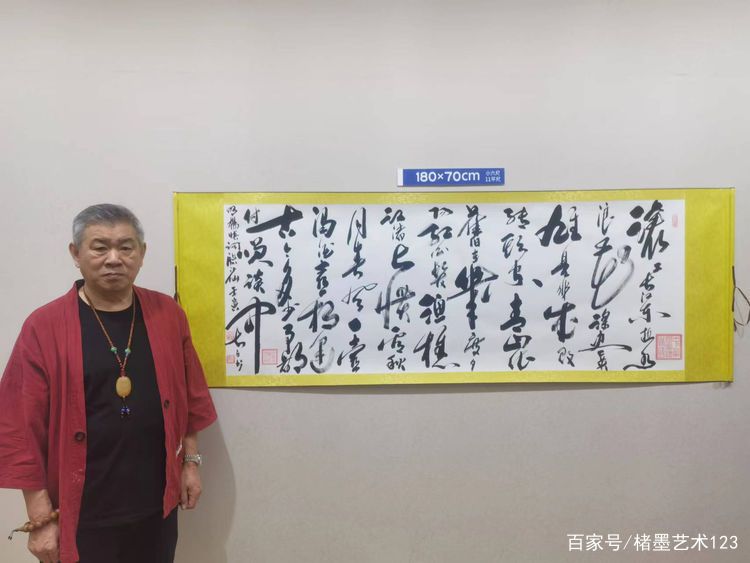 180×70cm 小六尺
11平尺
滚滚长江东逝水
浪花淘尽英
雄是非成败
转头空青山依
舊在几度夕
阳红白发渔樵
江渚上惯看秋
月春风一壶
浊酒喜相逢
古今多少事都
付笑谈中
百家号/楮墨艺术123